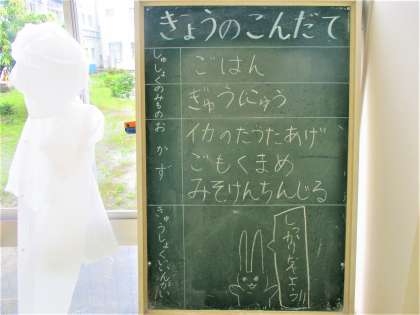 きょうのこんだて
しゅしょく
ごはん
のみもの
ぎゅうにゅう
おかず
イカのたつたあげ
ごもくまめ
みそけんちんじる
きゅうしょくいいんかい